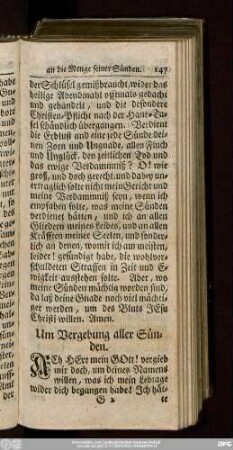 an die Menge seiner Sünden. 147
der Schlüsel gemißbraucht, wider das
heilige Abendmahl offtmals gedacht
und gehandelt, und die besondere
Christen-Pflicht nach der Haus-Ta-
fel schändlich übergangen. Verdienet
die Erblust und eine jede Sünde dei-
nen Zorn und Ungnade, allen Fluch
und Unglück, den zeitlichen Tod und
das ewige Verdammniß? O! wie
groß, und doch gerecht, und dabey un-
ertraglich solte nicht mein Gericht und
meine Verdammniß seyn, wenn ich
empfahen solte, was meine Sünden
verdienet hätten, und ich an allen
Gliedern meines Leibes, und an allen
Kräfften meiner Seelen, und sonder-
lich an denen, womit ich am meisten,
leider! gesündiget habe, die wohlver-
schuldeten Straffen in Zeit und E-
wigkeit ausstehen solte. Aber, wo
meine Sünden mächtig worden sind,
da laß deine Gnade noch viel mächti-
ger werden, um des Bluts JEsu
Christi willen. Amen.
Um Vergebung aller Sün-
den.
ACh HErr mein GOtt! vergieb
mir doch, um deines Namens
willen, was ich mein Lebtage
wider dich begangen habe! Ich hät-
G 2 te